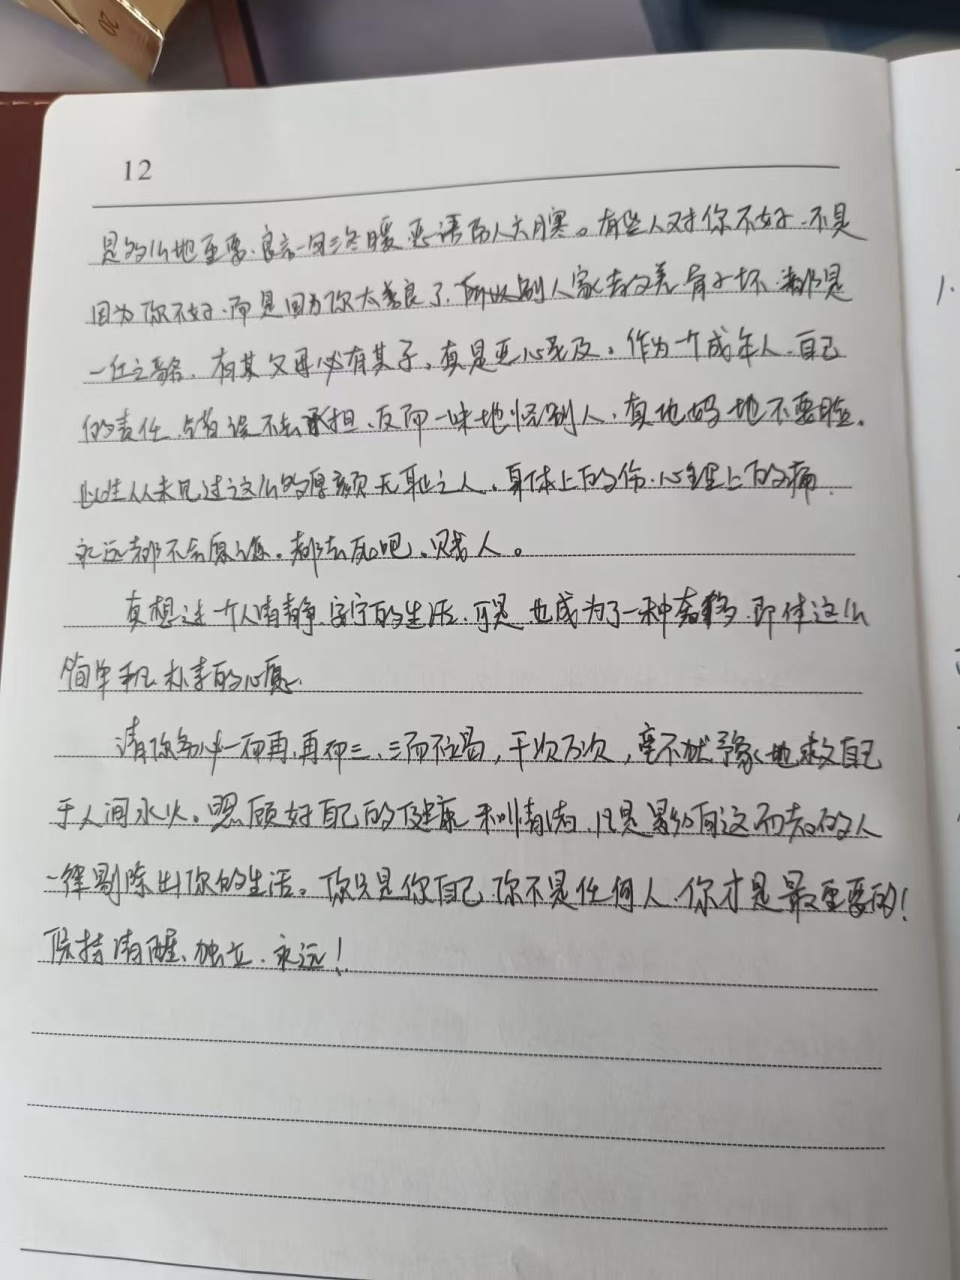 12
是多么地重要.良言一句三冬暖,恶语伤人六月寒。有些人对你不好.不是
因为你不好.而是因为你太善良了.所以别人家教的差 骨子坏.都是
一丘之貉.有其父母必有其子。真是恶心至及。作为一个成年人.自己
的责任.错误不去承担、反而一味地怪别人.真他妈地不要脸。
此生从未见过这么的厚颜无耻之人。身体上的伤.心理上的痛.
永远都不会原谅。都去死吧.贱人。
真想过一个人清静.安宁的生活.可是也成为了一种奢移.即使这么
简单和朴素的心愿.
请你务必一而再,再而三、三而不竭,千次万次,毫不犹豫地救自己
于人间水火。照顾好自己的健康和情绪.凡是影响这两者的人
一律剔除出你的生活。你只是你自己.你不是任何人.你才是最重要的!
保持清醒、独立.永远!
1.